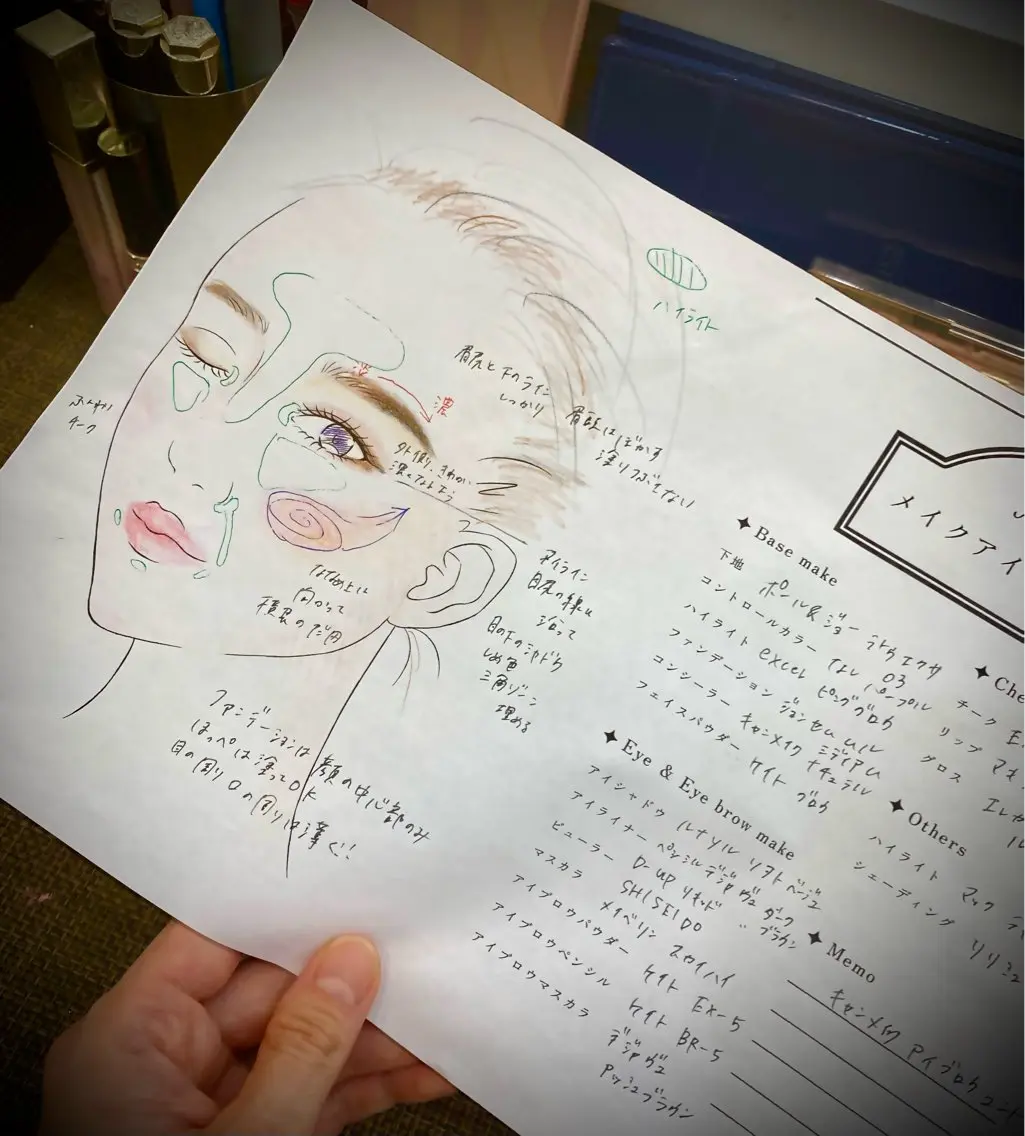 ハイライト
眉尻と下のライン
しっかり
眉頭はぼかす
塗りつぶさない
濃
ふんわり
チーク
外側、きわがい
濃くなるよう
ななめ上に
向かって
アイライン
目尻の線に
沿って
目の下のシャドウ
しめ色
三角ゾーン
埋める
ファンデーションは顔の中心部のみ
ほっぺは塗ってOK
目の周り口の周りは薄く!!
メイクアイ
Base make
下地 ポール&ジョー ラトゥエクサ 03
コントロールカラー なし パープル
ハイライト excel ピンクグロウ
ファンデーション ジョンセムムル ミディアム
コンシーラー キャンメイク ナチュラル
フェイスパウダー ケイト グロウ
Eye & Eye brow make
アイシャドウ ルナソル ソフトベージュ
アイライナー ペンシル デジャヴュ ダーク
D-up リキッド 〃 ブラウン
ビューラー SHISEIDO
マスカラ メイベリン スカイハイ
アイブロウパウダー ケイト EX-5
アイブロウペンシル ケイト BR-5
アイブロウマスカラ デジャヴュ
アッシュブラウン
Che
チーク
リップ マキ
グロス エレガ
Others
ハイライト マック
シェーディング リリミュ
Memo
キャンメイク アイブロウコート